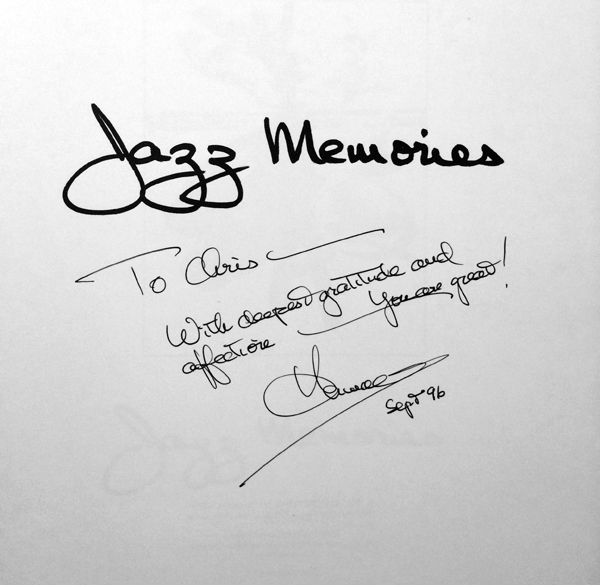 Jazz Memories
To Chris
With deepest gratitude and
affection You are great!
Sept 96